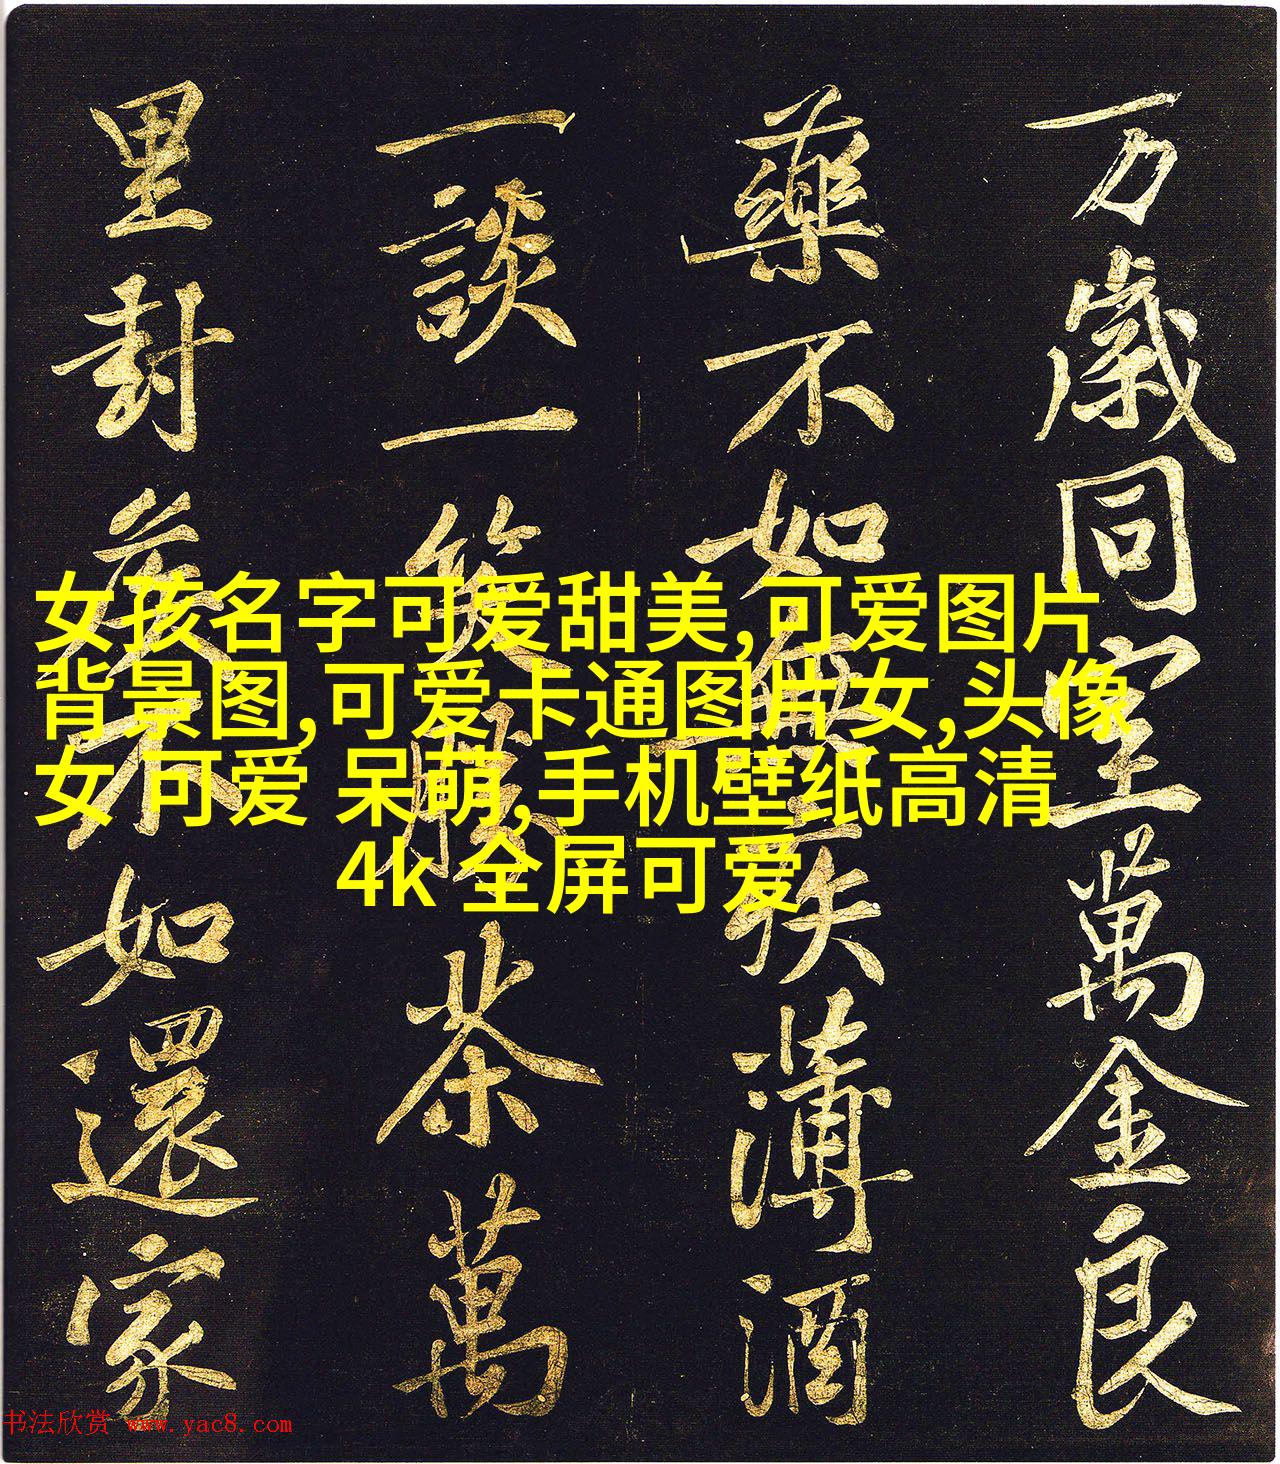 万歲同室萬金良
藥不如無疾薄酒
一談一笑勝茶萬
里封侯不如還家
女孩名字可爱甜美,可爱图片
背景图,可爱卡通图片女,头像
女 可爱 呆萌,手机壁纸高清
4k 全屏可爱
书法欣赏 www.yac8.com